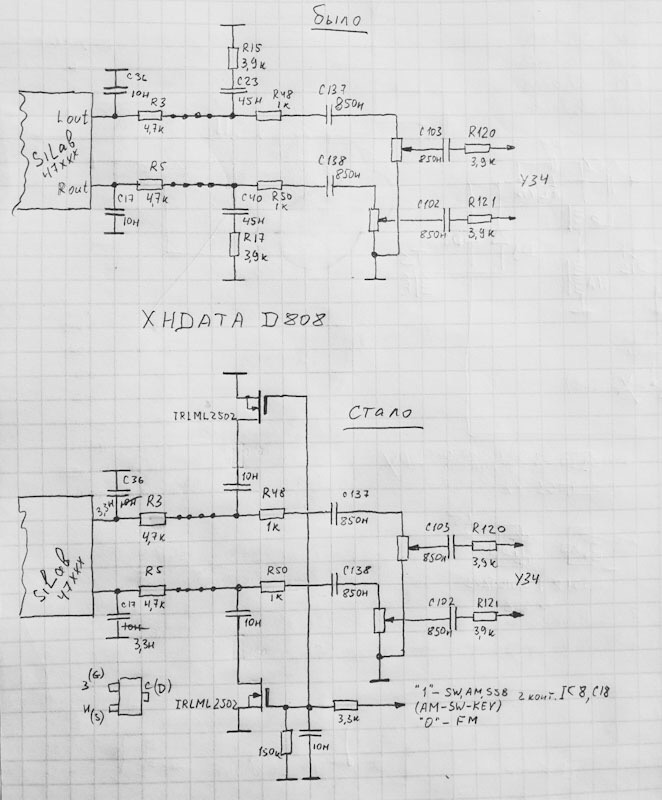 было
R15
3,9к
C36
10н
C23
45н
R48
1к
C137
850н
Lout
R3
4,7к
SiLab
47xxx
C103
850н
R120
3,9к
Rout
R5
4,7к
C17
10н
C40
45н
R50
1к
C138
850н
УЗЧ
C102
850н
R121
3,9к
R17
3,9к
XHDATA D808
IRLML2502
Стало
C36
10н
3,3н
R3
4,7к
10н
R48
1к
C137
850н
C103
850н
R120
3,9к
SiLab
47xxx
R5
4,7к
C17
10н
3,3н
10н
R50
1к
C138
850н
УЗЧ
C102
850н
R121
3,9к
З (G)
И (S)
С (D)
IRLML2502
150к
10н
3,3к
"1" - SW, AM, SSB 2 конт. IC8, C18
(AM-SW-KEY)
"0" - FM